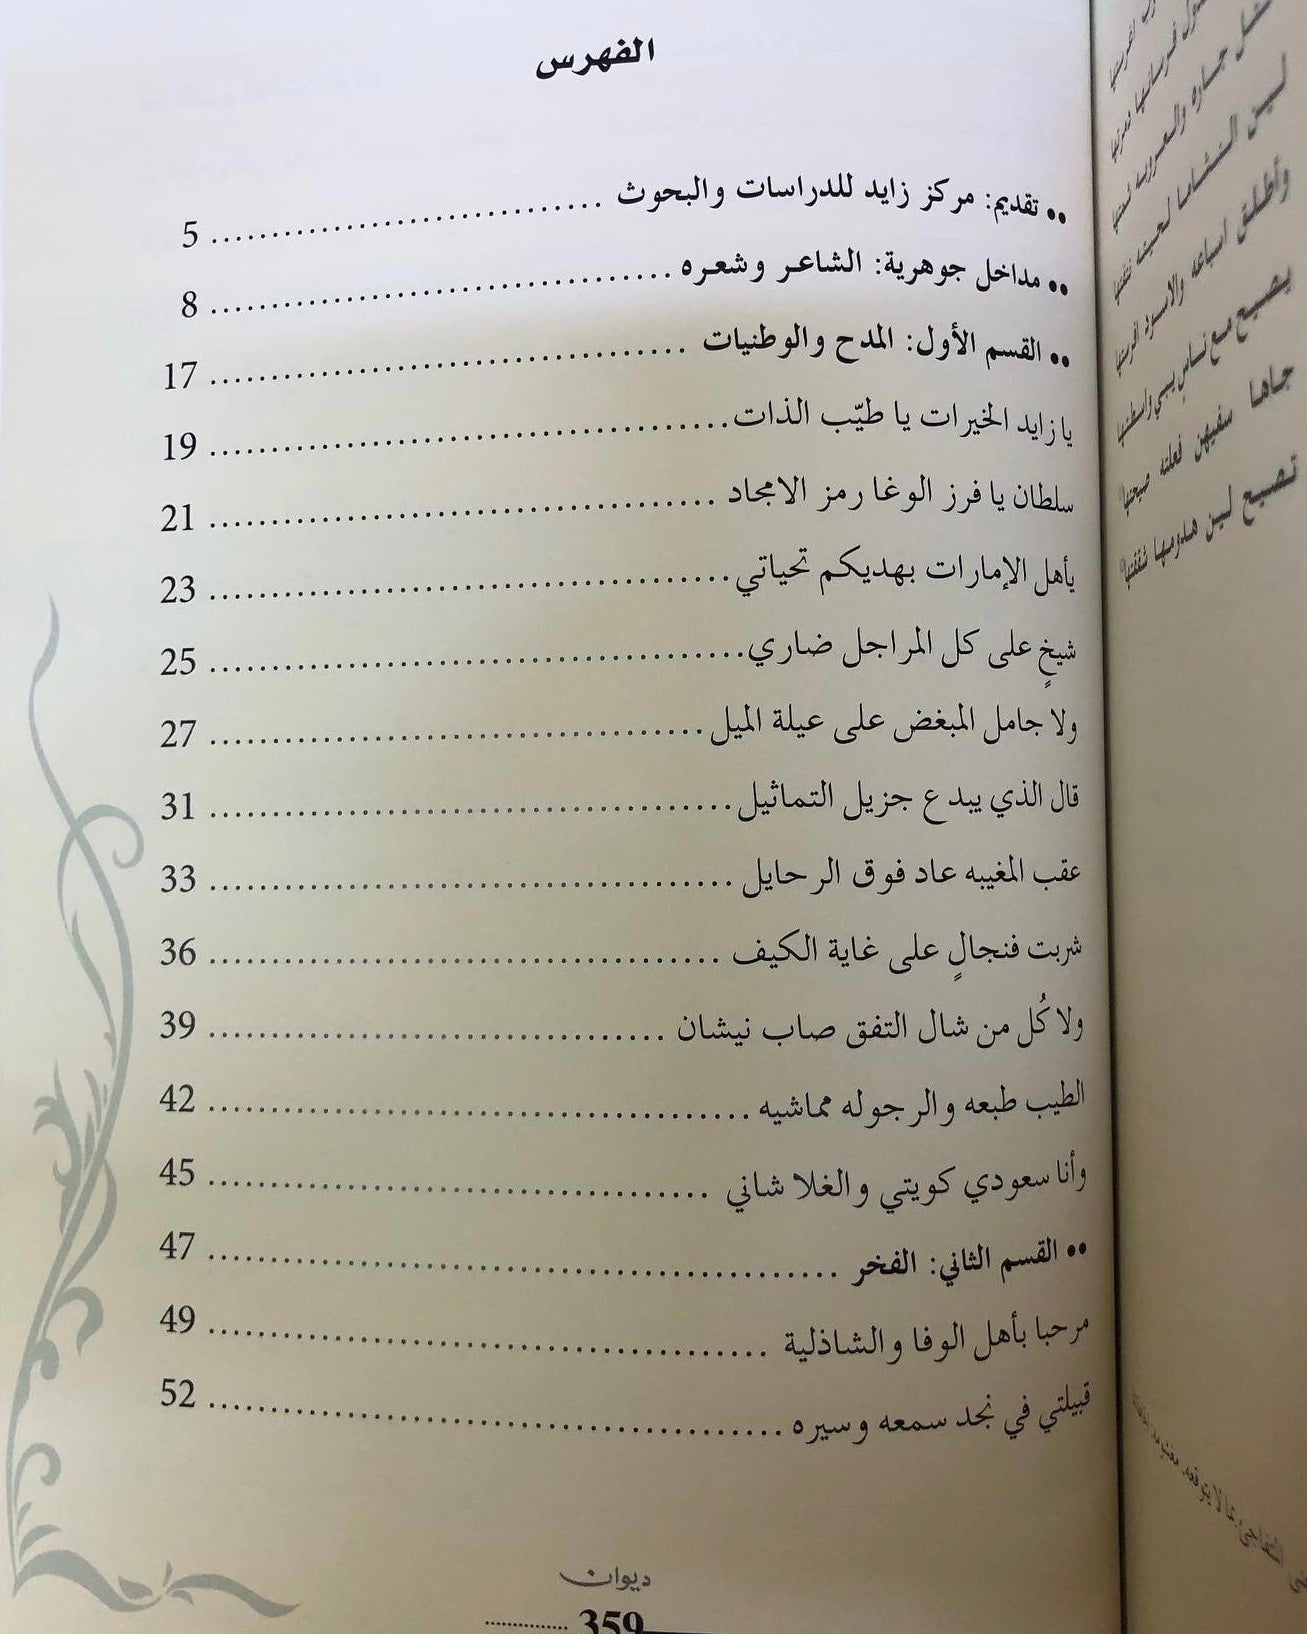 الفهرس
•• تقديم: مركز زايد للدراسات والبحوث ........................................ 5
•• مداخل جوهرية: الشاعر وشعره ........................................ 8
•• القسم الأول: المدح والوطنيات ........................................ 17
يا زايد الخيرات يا طيّب الذات ........................................ 19
سلطان يا فرز الوغا رمز الامجاد ........................................ 21
يأهل الإمارات بهديكم تحياتي ........................................ 23
شيخٍ على كل المراجل ضاري ........................................ 25
ولا جامل المبغض على عيلة الميل ........................................ 27
قال الذي يبدع جزيل التماثيل ........................................ 31
عقب المغيبه عاد فوق الرحايل ........................................ 33
شربت فنجالٍ على غاية الكيف ........................................ 36
ولا كُل من شال التفق صاب نيشان ........................................ 39
الطيب طبعه والرجوله مماشيه ........................................ 42
وأنا سعودي كويتي والغلا شاني ........................................ 45
•• القسم الثاني: الفخر ........................................ 47
مرحبا بأهل الوفا والشاذلية ........................................ 49
قبيلتي في نجد سمعه وسيره ........................................ 52
ديوان
359